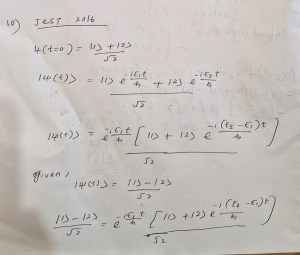 10) JEST 2016
ψ(t=0) = |1> + |2> / √2
|ψ(t)> = |1> e^{-iε₁t/ħ} + |2> e^{-iε₂t/ħ} / √2
|ψ(t)> = e^{-iε₁t/ħ} [ |1> + |2> e^{-i(ε₂-ε₁)t/ħ} ] / √2
given,
|ψ(t)> = |1> - |2> / √2
|1> - |2> / √2 = e^{-iε₁t/ħ} [ |1> + |2> e^{-i(ε₂-ε₁)t/ħ} ] / √2